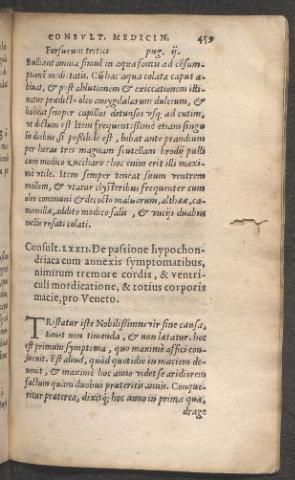 CONSVLT. MEDICIN. 459
Furfurum tritici pug. ij.
Bulliant omnia simul in aqua fontis ad cōsum-
ptionē medietatis. Cū hac aqua colata caput a-
bluat, & post ablutionem & exiccationem illi-
natur prædicto oleo amygdalarum dulcium, &
habeat semper capillos detunsos vsq; ad cutim,
vt dictum est Item frequentissimè etiam singu
lis diebus, si possibile est, bibat ante prandium
per horas tres magnam scutellam brodij pulli
cum modico zuccharo: hoc enim erit illi maxi
mè vtile. Item semper teneat suum ventrem
mollem, & vtatur clysteribus frequenter cum
oleo communi & decocto maluarum, altheæ, ca-
momillæ, addito modico salis, & vncijs duabus
mellis rosati colati.
Consult. LXXII. De passione hypochon-
driaca cum annexis symptomatibus,
nimirum tremore cordis, & ventri-
culi mordicatione, & totius corporis
macie, pro Veneto.
TRistatur iste Nobilissimus vir sine causa,
timet non timenda, & non latatur. hoc
est primum symptoma, quo maximè affici con-
sueuit. Est aliud, quòd quotidie in maciem de-
uenit, & maximè hoc anno videt se aridiorem
factum quàm duobus præteritis annis. Conque-
ritur præterea, dixitq; hoc anno in prima qua-
drage